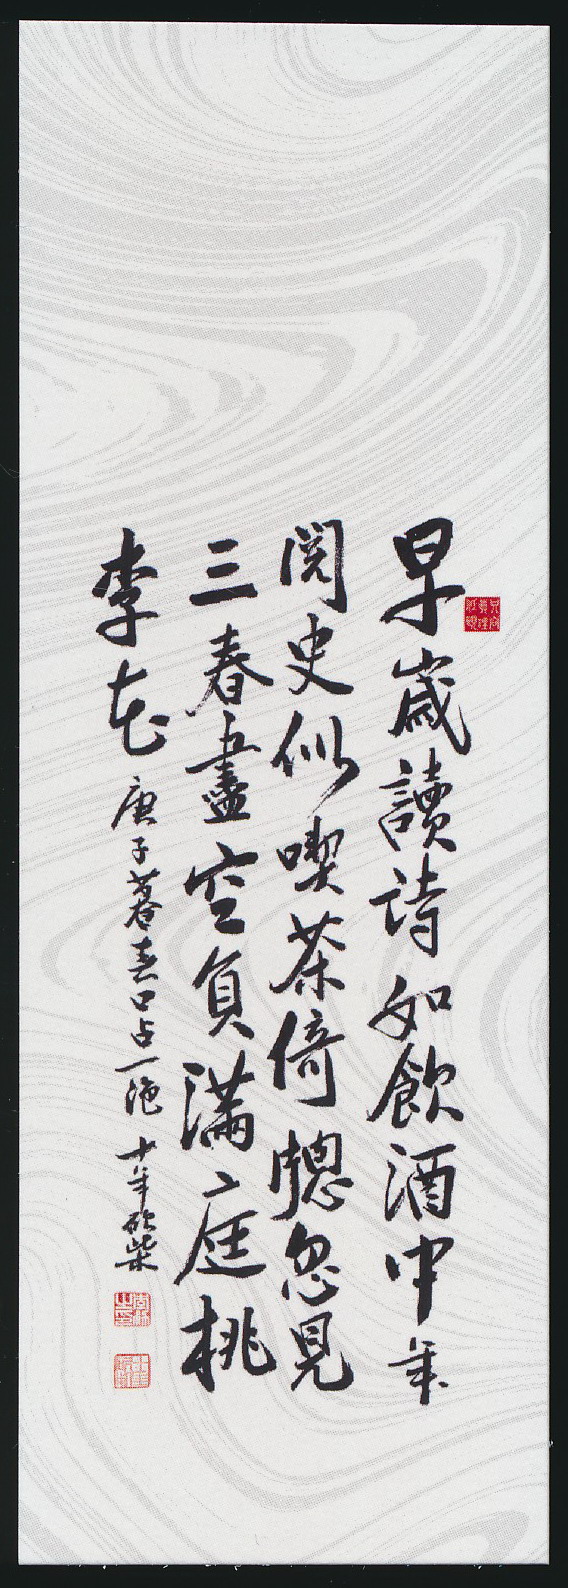 早歲讀詩如飲酒中年
閱史似喫茶倚牕忽見
三春盡空負滿庭桃
李花庚子暮春口占一絕 十年砍柴